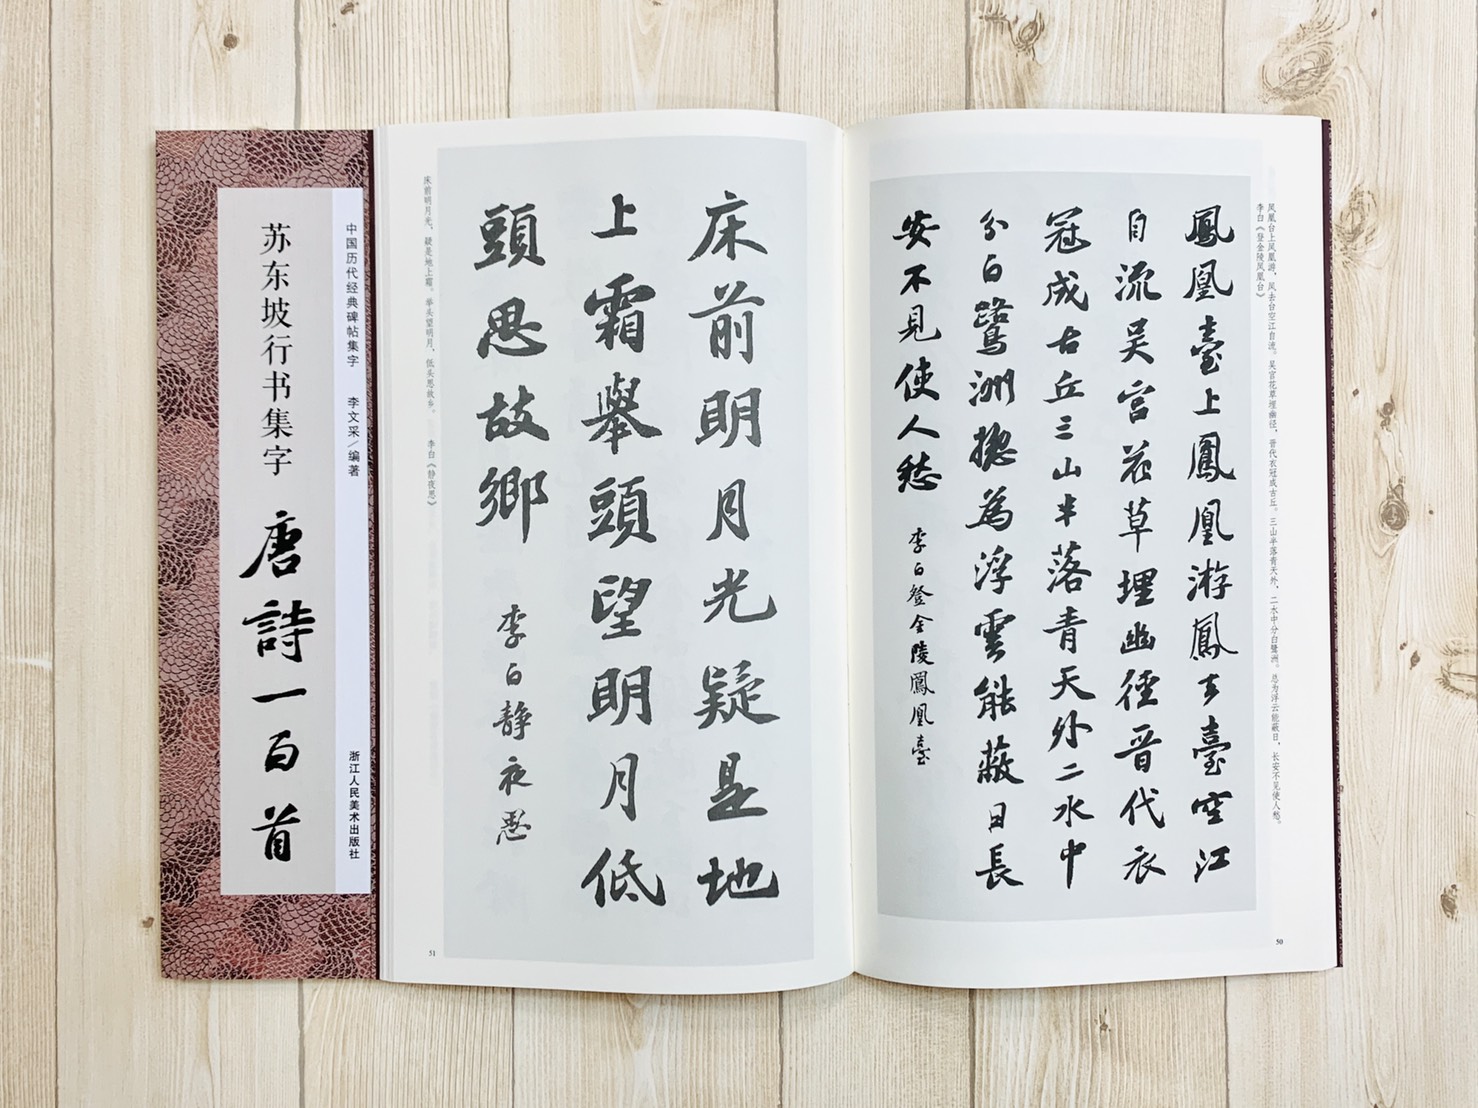 凤凰台上凤凰游，凤去台空江自流。吴宫花草埋幽径，晋代衣冠成古丘。三山半落青天外，二水中分白鹭洲。总为浮云能蔽日，长安不见使人愁。
李白《登金陵凤凰台》
鳳凰臺上鳳凰游鳳去臺空江
自流吴宫花草埋幽徑晉代衣
冠成古丘三山半落青天外二水中
分白鷺洲揔為浮雲能蔽日長
安不見使人愁 李白登金陵鳳凰臺
50
床前明月光疑是地
上霜舉頭望明月低
頭思故鄉 李白静夜思
床前明月光，疑是地上霜。举头望明月，低头思故乡。 李白《静夜思》
51
中国历代经典碑帖集字 李文采/编著 浙江人民美术出版社
苏东坡行书集字 唐詩一百首